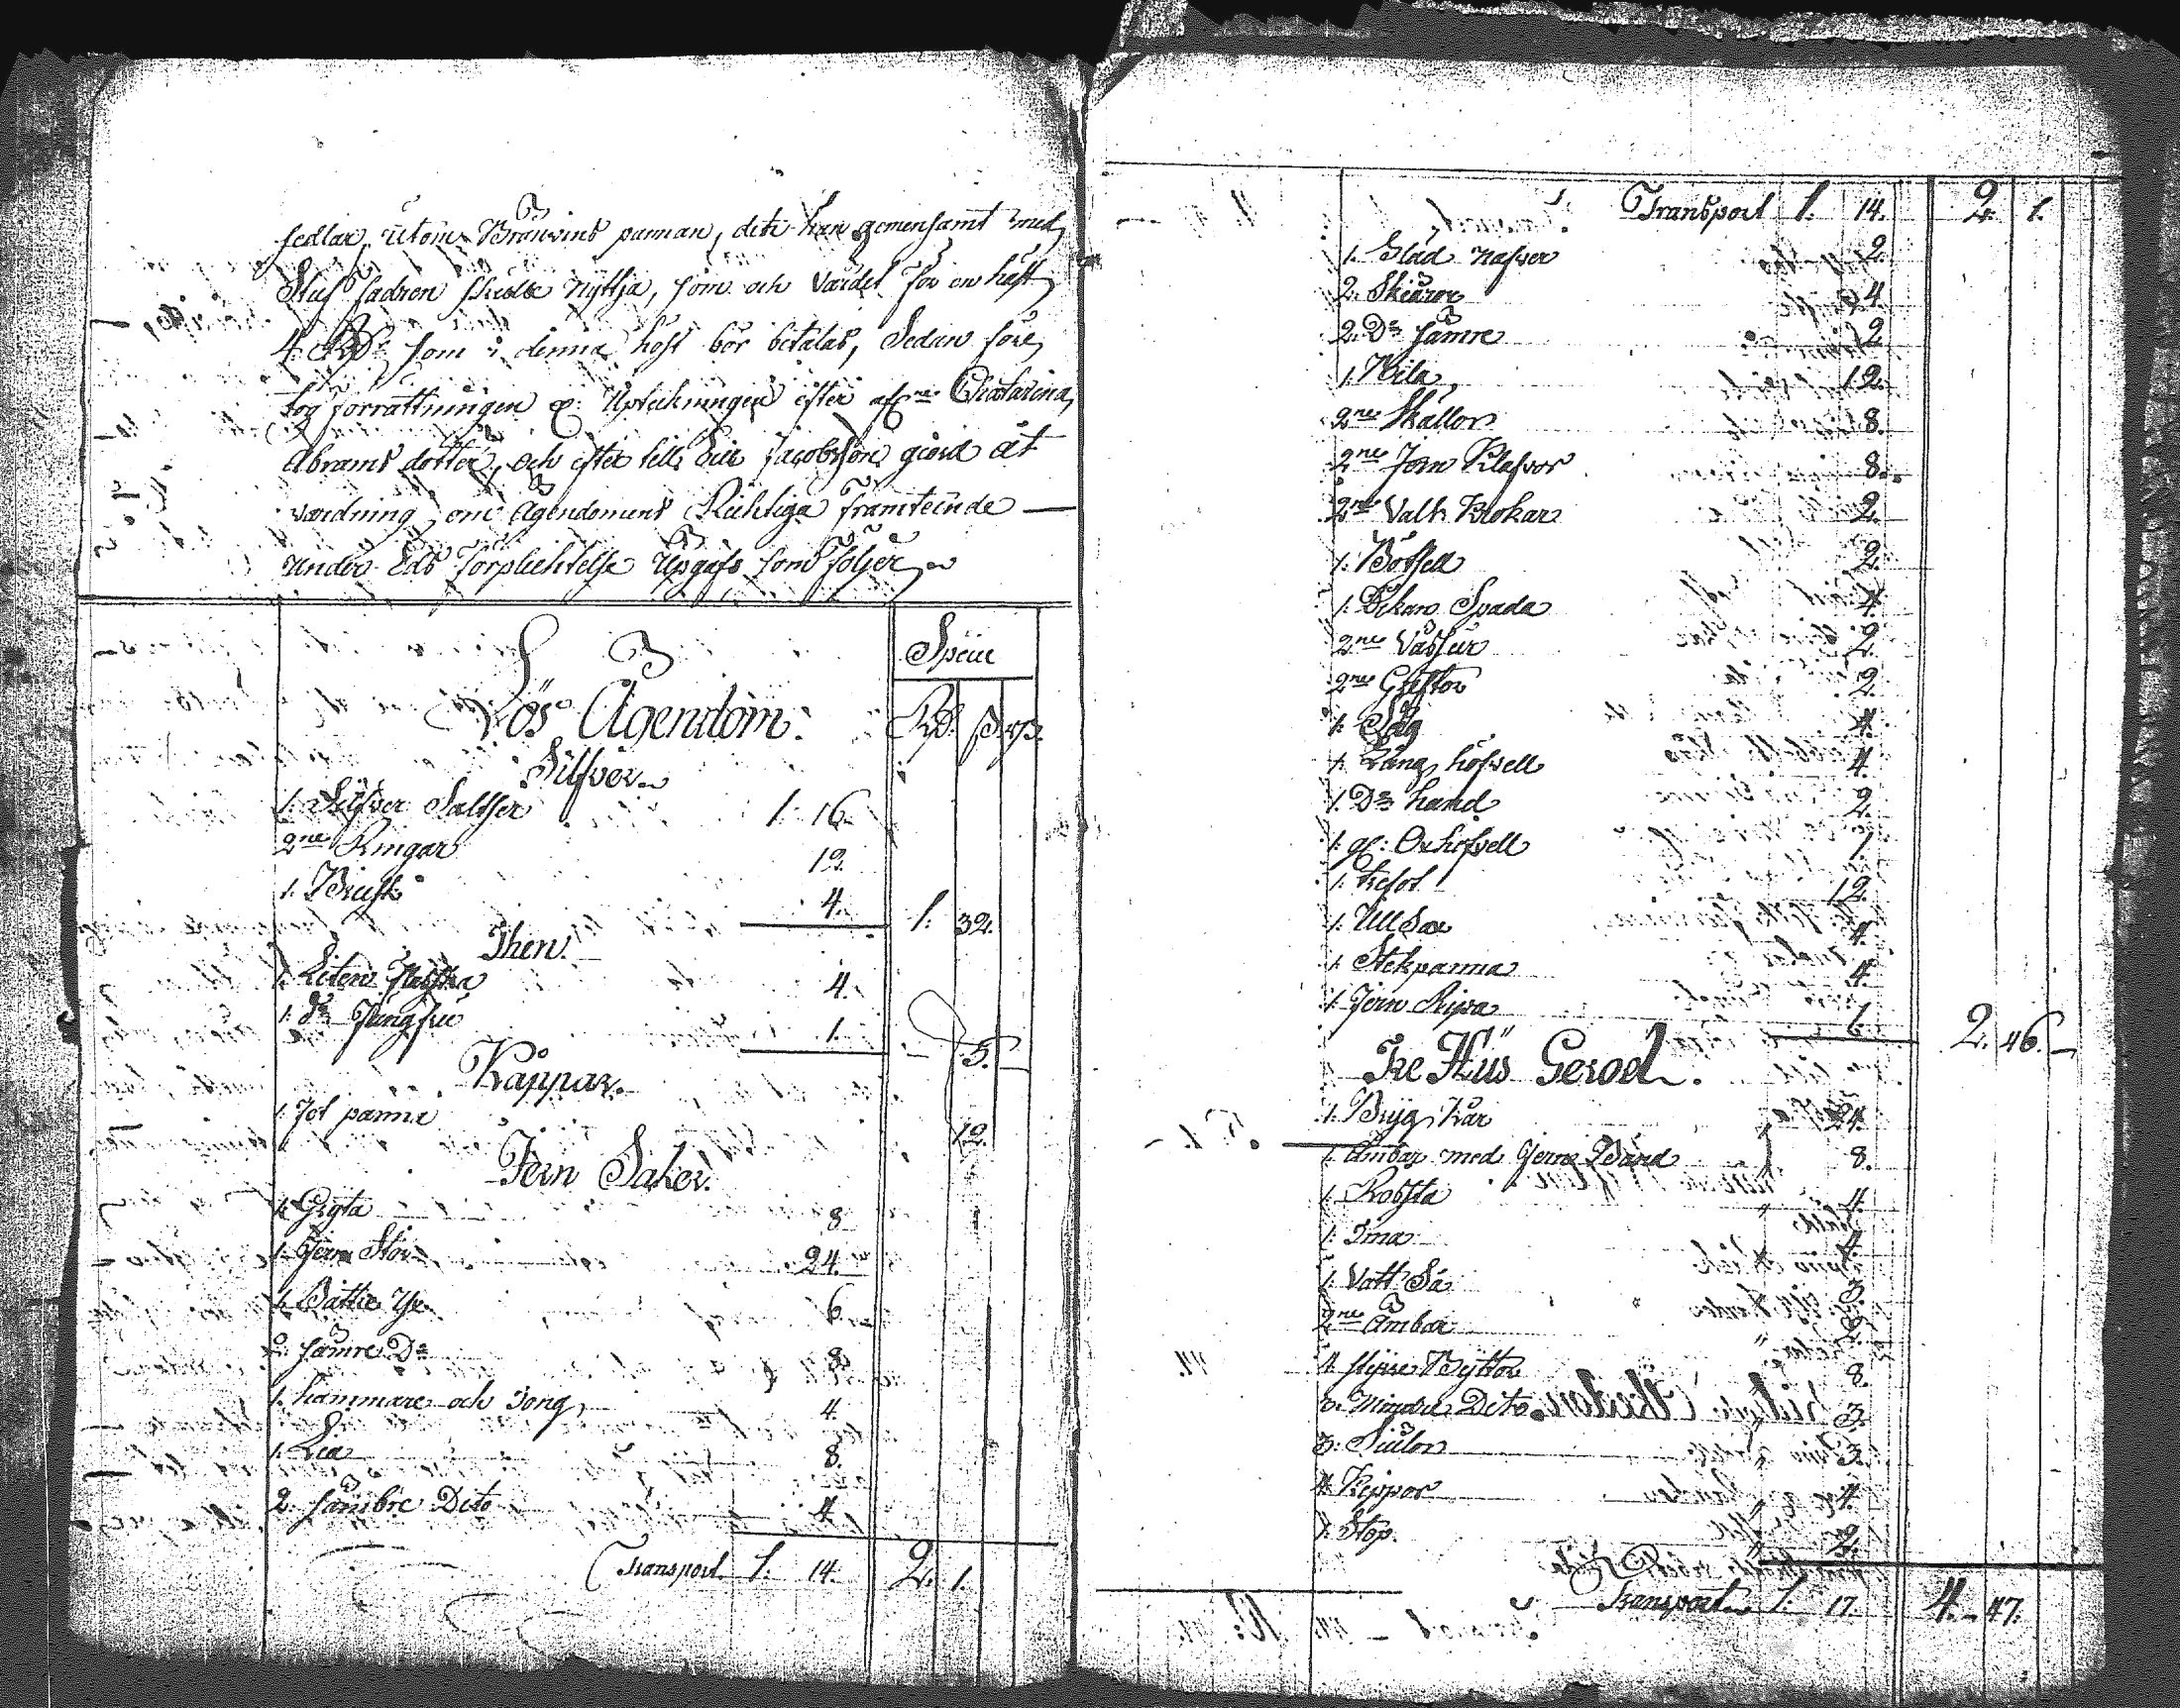 sedlar, utom Bränvins pannan, det han gemensamt med
Stuf fadren skulle nyttja, som och värdet för en häst
4 Rd som i denna höst bör betalas, Sedan före
tog förrättningen Uptekningen efter afl. Chatarina
Abrams dotter, och efter till Jacobsson giord åt
värdning, om Ägendomens Richtiga framteende —
under Eds förplichtelse Upgafs som följer
Specie
Lös Ägendom.
Rd. s. rs.
Silfver
1. Silfver Saltser 1. 16.
2ne Ringar 12.
1. Brisk 4. 1. 32.
Then.
1. Liten flaska 4.
1. Do Jungfru 1. 5.
Kåppar.
1. Jot panna 12.
Jern Saker.
1. Gryta 8
1. Jern Stör 24.
1. Bättre Yx 6.
2. sämre Do 8.
1. hammare och Tong 4.
1. Lia 8.
2. sämbre Dito 4.
Transport 1. 14. 2. 1.
Transport 1. 14. 2. 1.
1. Slåd nafvar 2.
2. Skiäror 4.
2. Do sämre 2.
1. Kila 12.
2ne Skållor 8.
2ne Jern Klafvor 8.
2ne Valk Krokar 2.
1. Bötsell 2.
1. Svada 4.
2ne Vassur 2.
2ne Greftor 2.
1. Såg 4.
1. Lång höfvell 4.
1. Do hand 2.
1. gl: Oxhofvell 1
1. trefot 12.
1. Ull Sax 4.
1. Stekpanna 4.
1. Jern Ripa 6. 2. 46. —
Tre Hus Geroel.
1. Bryg Kar 24.
1. Ämbar med Jern Band 8.
1. Robsta 4.
1. Tina 4.
1. Vatt Så 3.
2ne Ämbar 2.
4. styre Byttor 8.
3. Mindre Dito 3.
3. Siulor 3.
4. Kippor 4.
1. Stop. 2.
Transport 1. 17. 4. — 47.